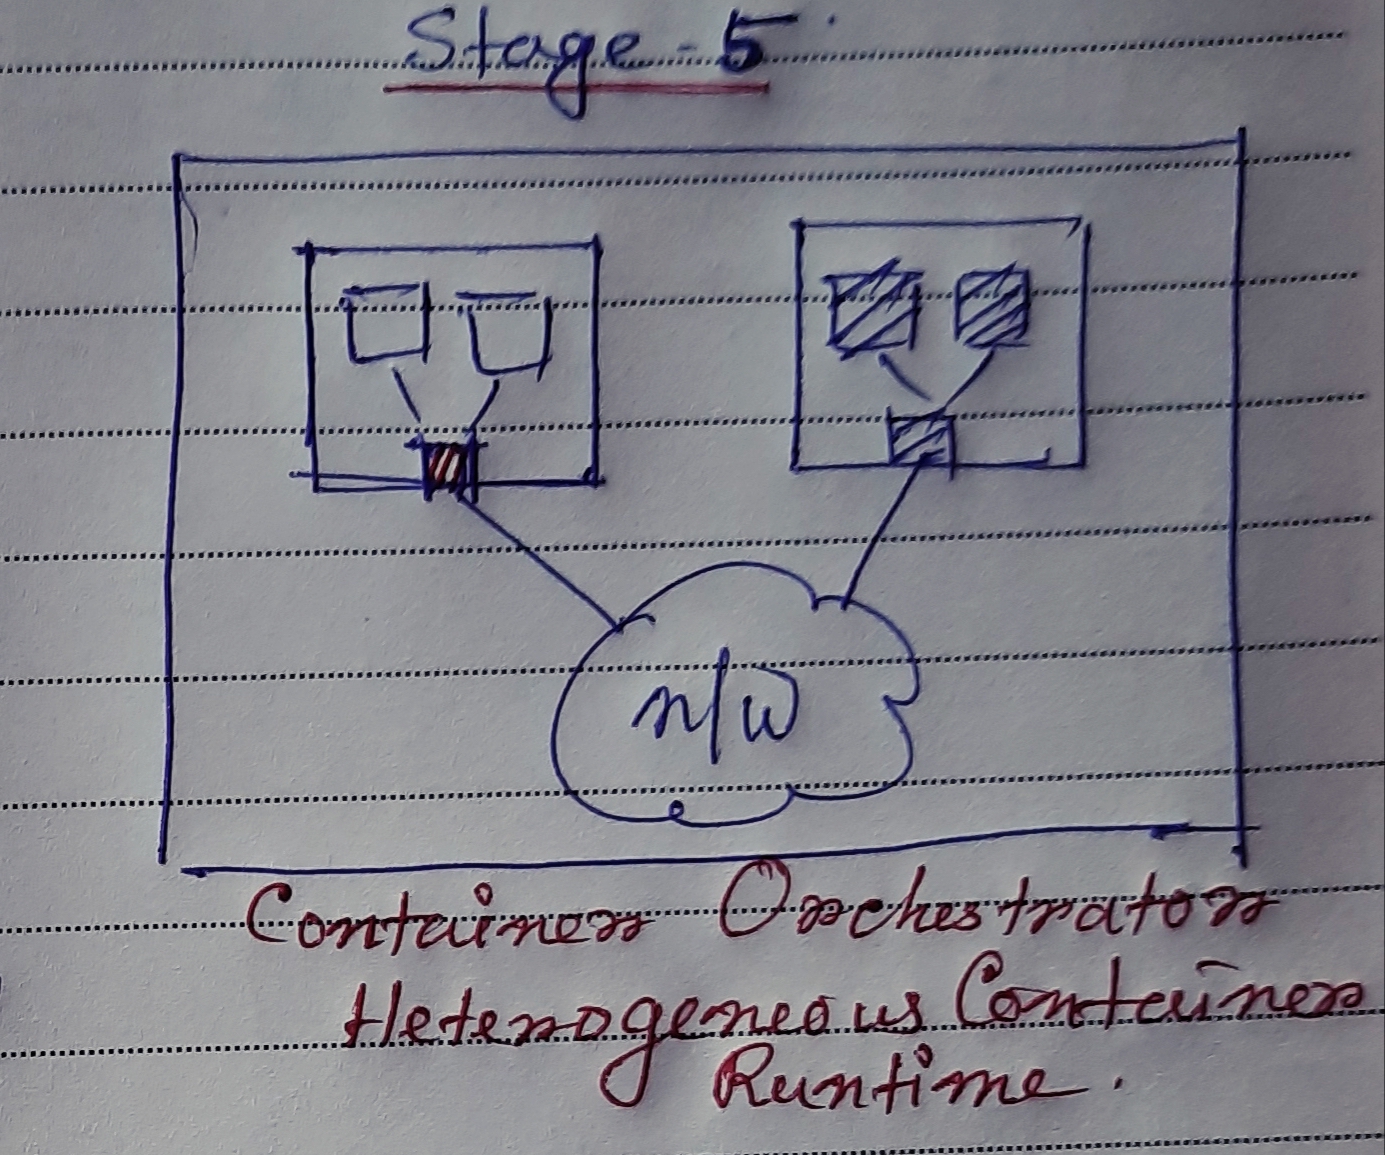 Stage-5
n/w
Container Orchestrator
Heterogeneous Container
Runtime.